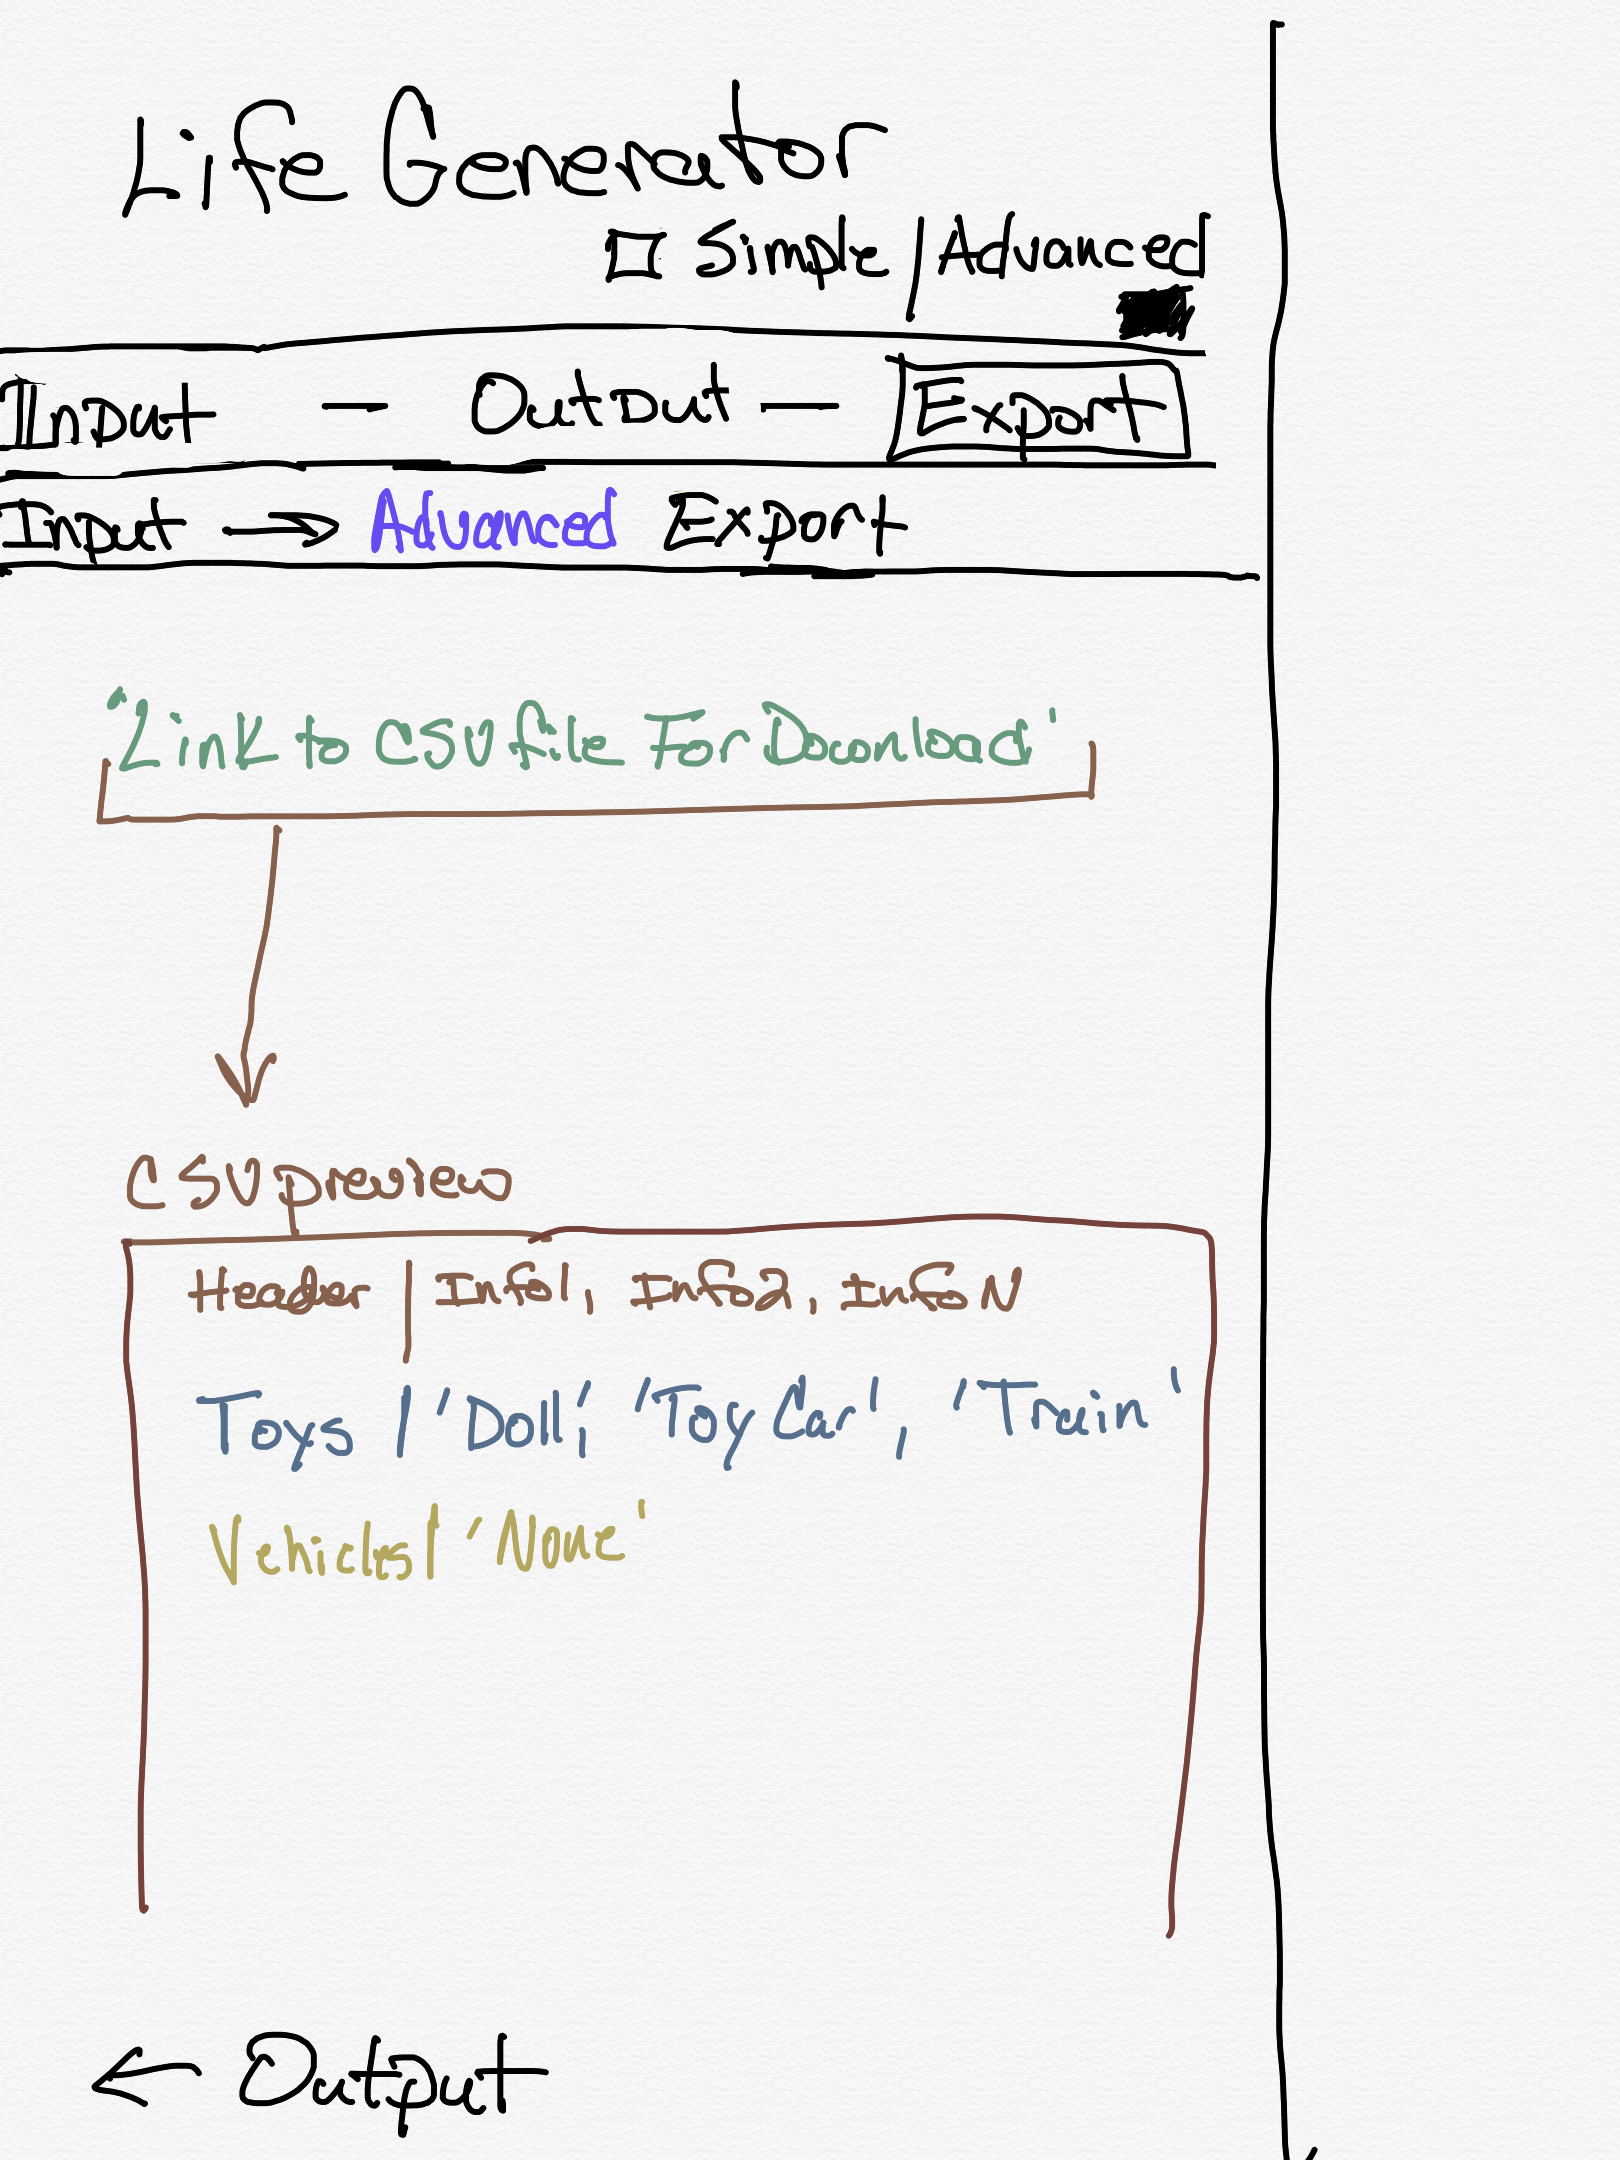 Life Generator
Simple / Advanced
Input — Output — Export
Input → Advanced Export
"Link to CSV file For Download"
CSV preview
Header | Info1, Info2, Info N
Toys | 'Doll', 'Toy Car', 'Train'
Vehicles | 'None'
← Output